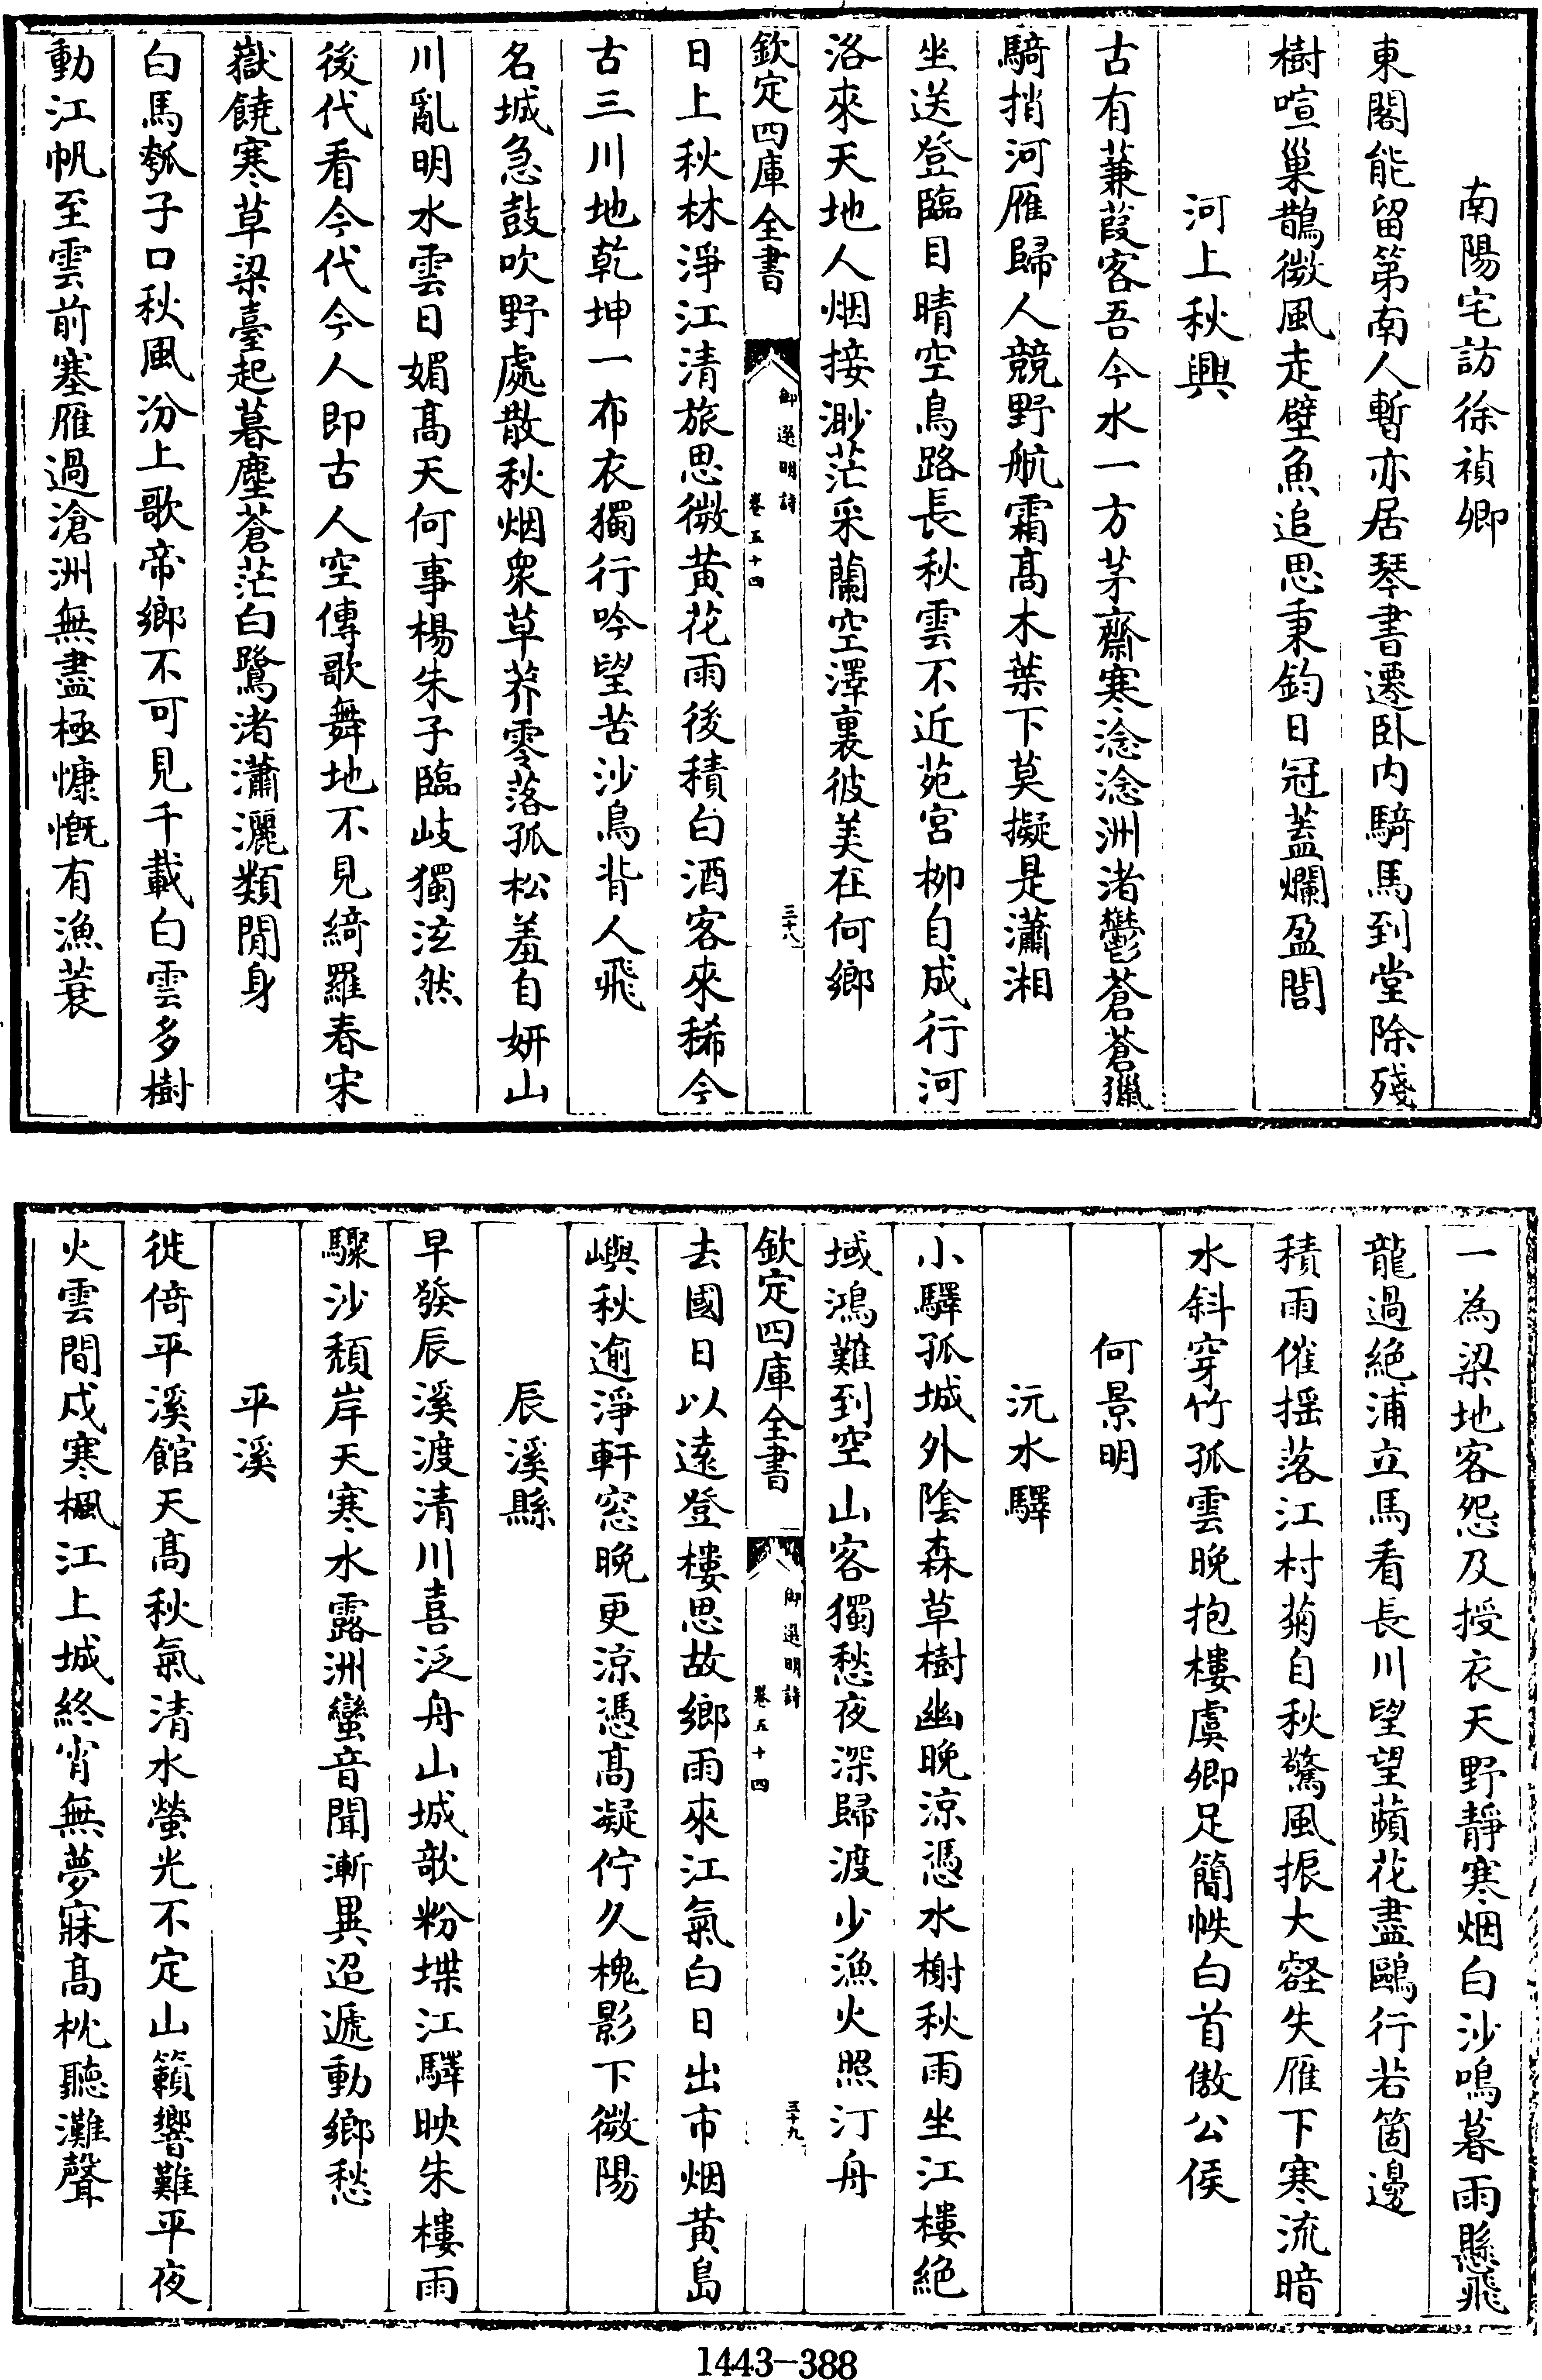 南陽宅訪徐禎卿
東閣能留第南人暫亦居琴書遷卧内騎馬到堂除殘
樹喧巢鵲微風走壁魚追思秉鈞日冠蓋爛盈閭
河上秋興
古有蒹葭客吾今水一方茅齋寒淰淰洲渚鬱蒼蒼獵
騎捎河雁歸人競野航霜髙木葉下莫擬是瀟湘
坐送登臨目晴空鳥路長秋雲不近苑宮柳自成行河
洛來天地人烟接渺茫采蘭空澤裏彼美在何鄉
欽定四庫全書
御選明詩
卷五十四
三十八
日上秋林淨江清旅思微黄花雨後積白酒客來稀今
古三川地乾坤一布衣獨行吟望苦沙鳥背人飛
名城急鼓吹野處散秋烟衆草莽零落孤松羞自妍山
川亂明水雲日媚髙天何事楊朱子臨岐獨泫然
後代看今代今人即古人空傳歌舞地不見綺羅春宋
嶽饒寒草梁臺起暮塵蒼茫白鷺渚瀟灑類閒身
白馬瓠子口秋風汾上歌帝鄉不可見千載白雲多樹
動江帆至雲前塞雁過滄洲無盡極慷慨有漁蓑
一為梁地客怨及授衣天野靜寒烟白沙鳴暮雨懸飛
龍過絶浦立馬看長川望望蘋花盡鷗行若箇邊
積雨催揺落江村菊自秋驚風振大壑失雁下寒流暗
水斜穿竹孤雲晚抱樓虞卿足簡帙白首傲公侯
何景明
沅水驛
小驛孤城外陰森草樹幽晚涼憑水榭秋雨坐江樓絶
域鴻難到空山客獨愁夜深歸渡少漁火照汀舟
欽定四庫全書
御選明詩
卷五十四
三十九
去國日以遠登樓思故鄉雨來江氣白日出市烟黄島
嶼秋逾淨軒窓晚更涼憑髙凝佇久槐影下微陽
辰溪縣
早發辰溪渡清川喜泛舟山城欹粉堞江驛映朱樓雨
驟沙頽岸天寒水露洲蠻音聞漸異迢遞動鄉愁
平溪
徙倚平溪館天髙秋氣清水螢光不定山籟響難平夜
火雲間戍寒楓江上城終宵無夢寐髙枕聽灘聲
1443-388